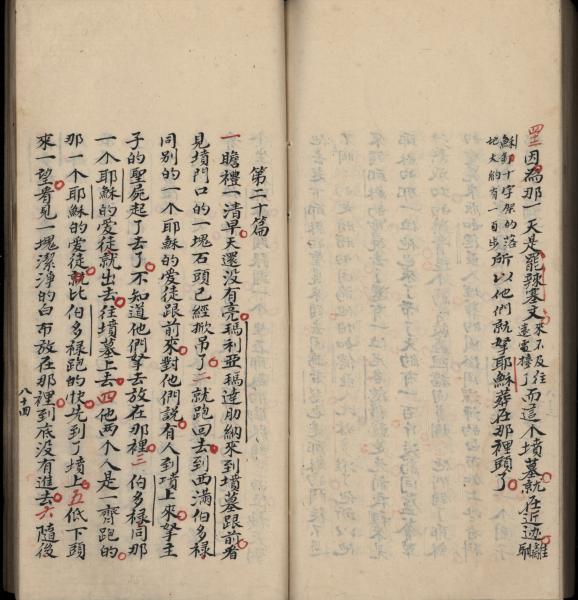 四二因為那一天是罷辣塞文來不及往遠處擡了而這個墳墓就在近迹離耶
穌釘十字架的落地大約有一百步所以他們就拏耶穌葬在那裡頭了
第二十篇
一瞻禮一清早天還没有亮瑪利亞瑪達肋納來到墳墓跟前看
見墳門口的一塊石頭已經掀吊了二就跑回去到西滿伯多祿
同别的一个耶穌的愛徒跟前來對他們說有人到墳上來拏主
子的聖屍起了去了不知道他們拏去放在那裡三伯多祿同那
一个耶穌的愛徒就出去往墳墓上去四他两个人是一齊跑的
那一个耶穌的愛徒就比伯多祿跑的快先到了墳上五低下頭
來一望看見一塊潔淨的白布放在那裡到底没有進去六隨後
八十四